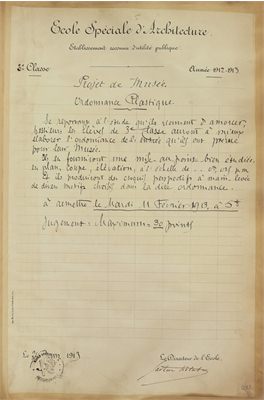 Ecole Spéciale d'Architecture.
Etablissement reconnu d'utilité publique.
2e Classe Année 1912-1913
Projet de Musée.
Ordonnance Plastique
Se reportant à l'étude qu'ils viennent d'amorcer,
Messieurs les élèves de 2e classe auront à mieux
élaborer l'ordonnance de l'entrée qu'ils ont prévue
pour leur Musée.
Ils en fourniront une mise au point bien étudiée
en plan, coupe, élévation, à l'échelle de
Et ils produiront des croquis perspectifs à main levée
de divers motifs choisis dans la dite ordonnance.
à remettre le Mardi 11 Février 1913, à 5h
Jugement : Maximum = 30 points
Le 1913
Le Directeur de l'Ecole.